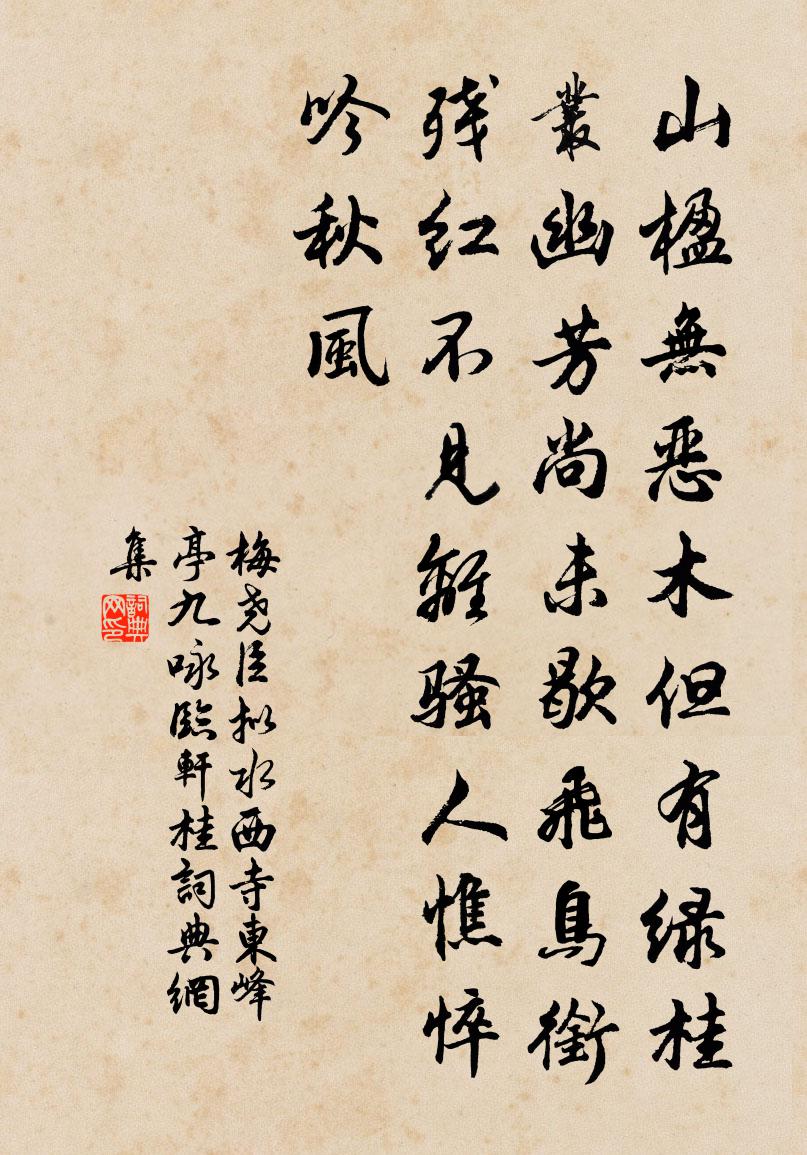 山楹無恶木但有緑桂
叢幽芳尚未歇飛鳥銜
残红不見離骚人憔悴
吟秋風
梅尧臣拟水西寺東峰
亭九咏臨軒桂詞典網
集
詞典
网印